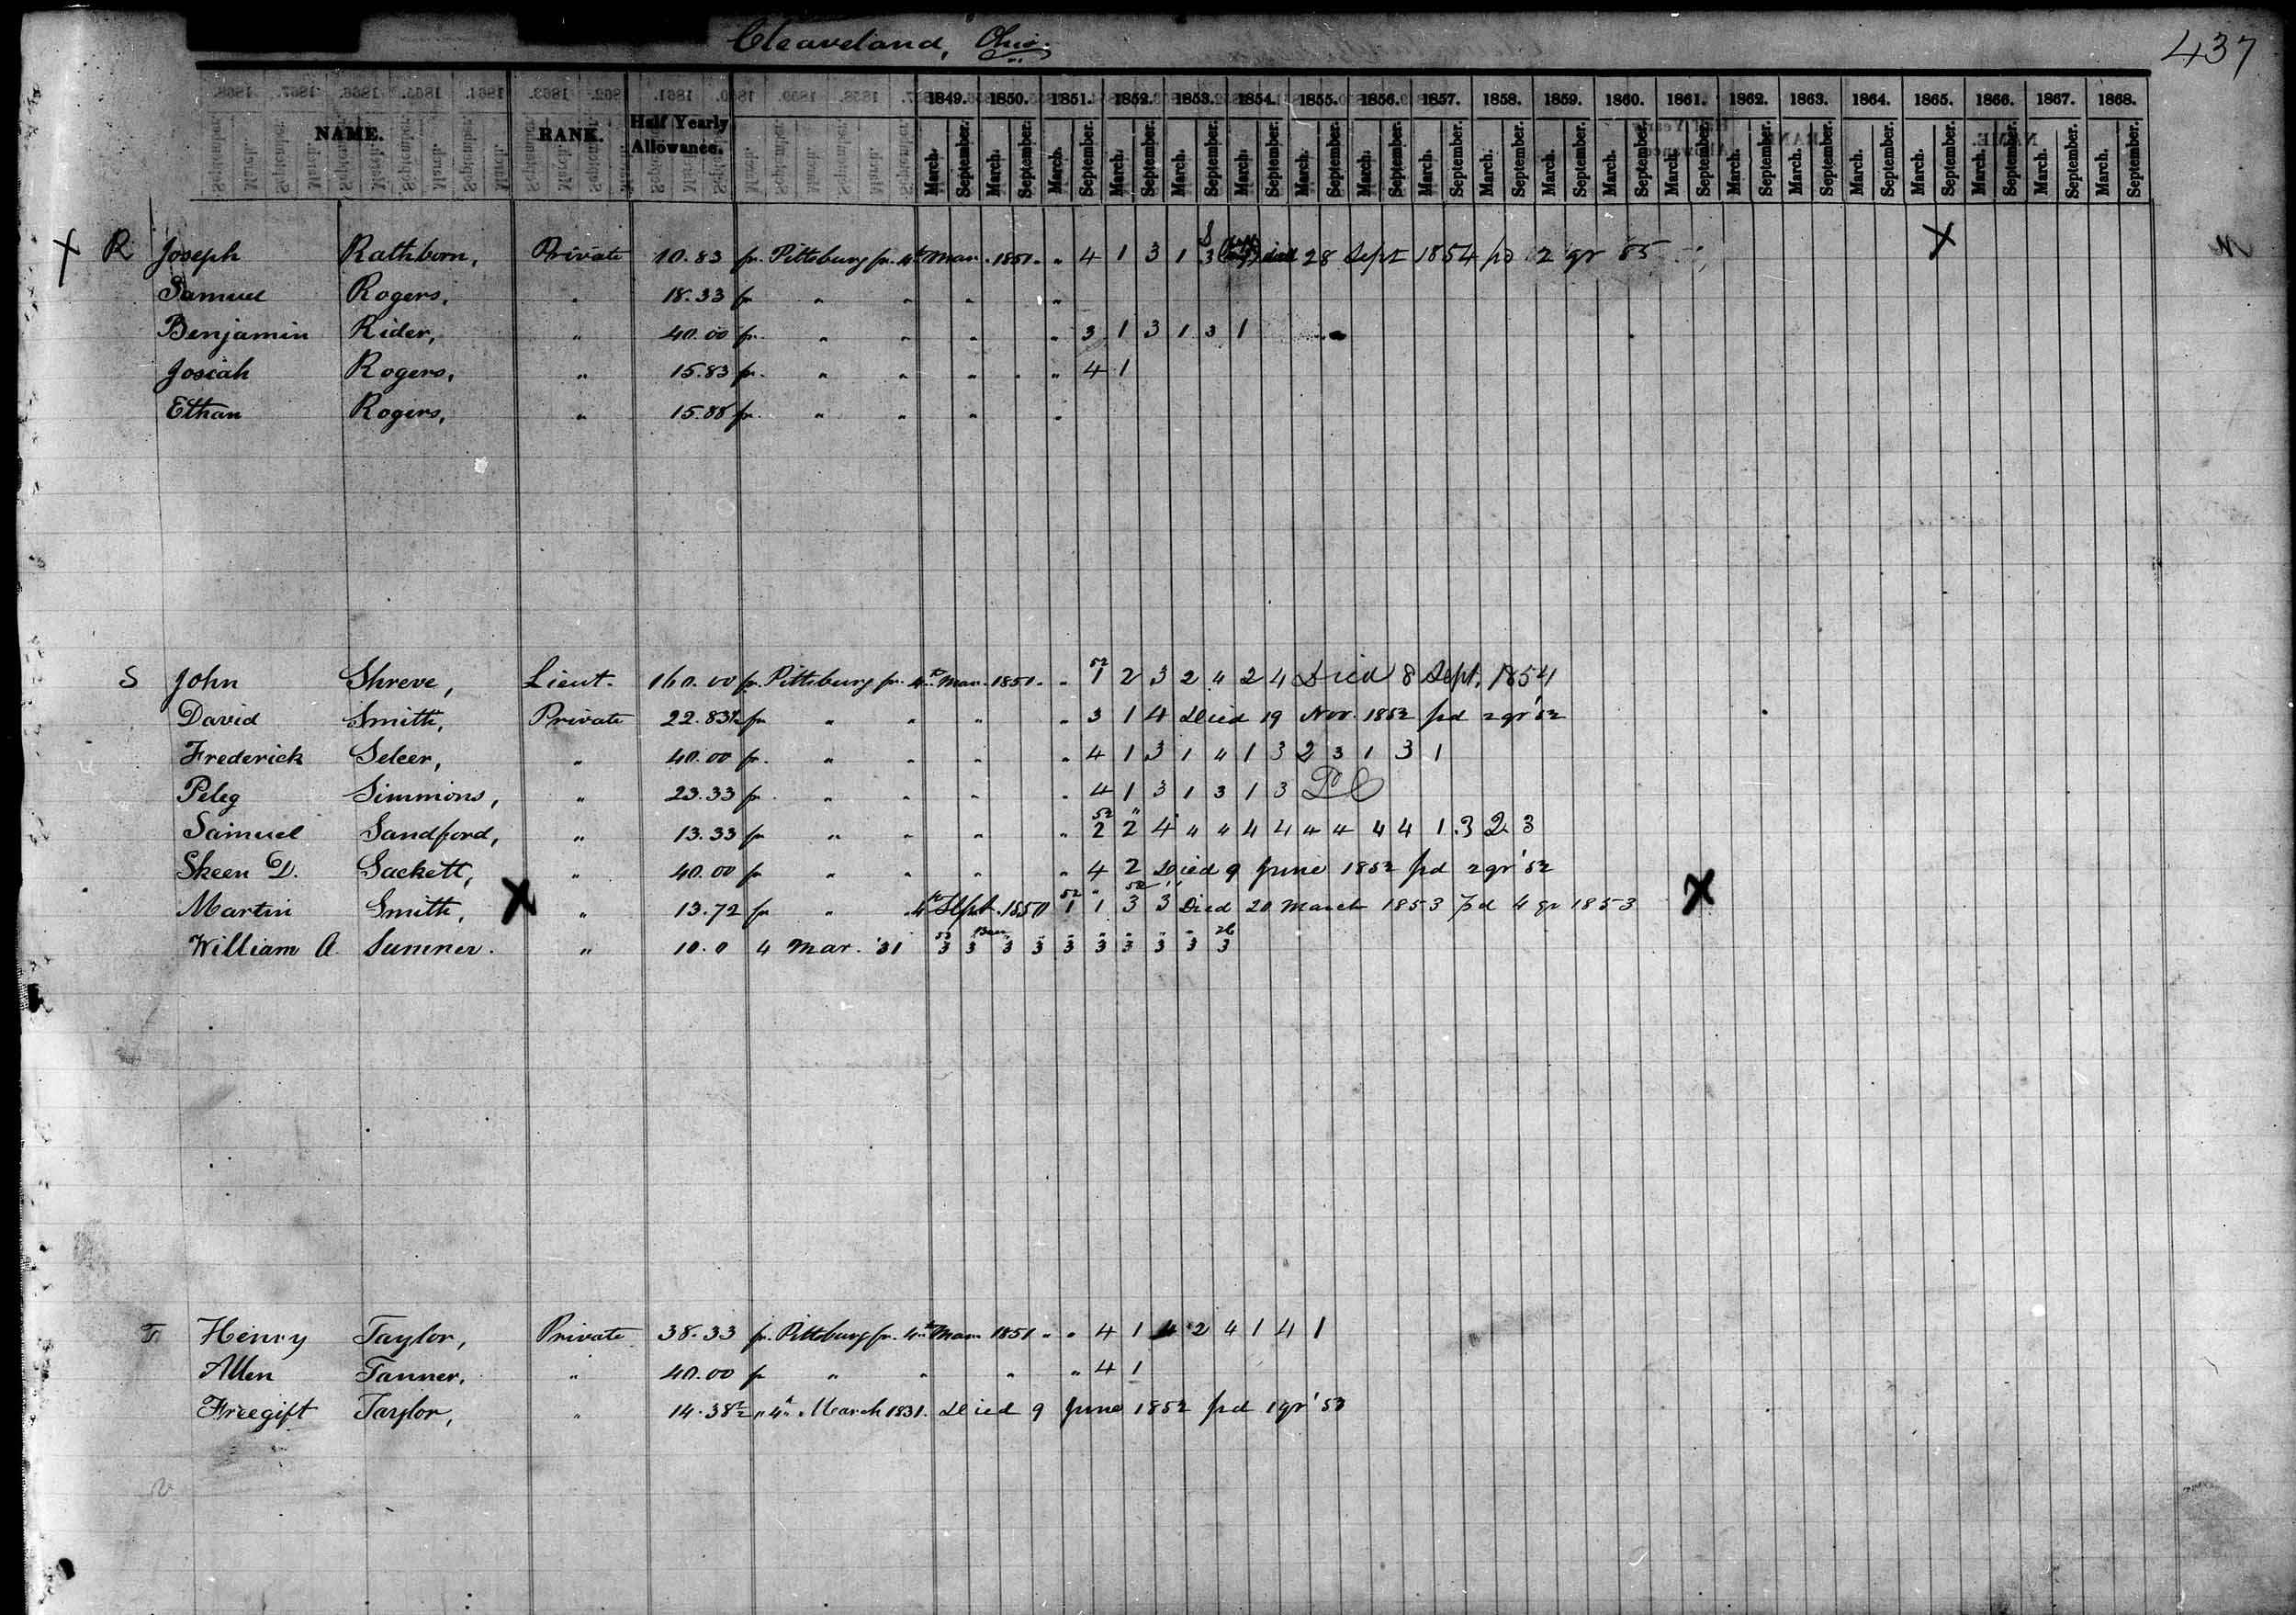 Cleaveland, Ohio.
437
NAME. RANK. Half Yearly Allowance. 1849. 1850. 1851. 1852. 1853. 1854. 1855. 1856. 1857. 1858. 1859. 1860. 1861. 1862. 1863. 1864. 1865. 1866. 1867. 1868.
March. September. March. September. March. September. March. September. March. September. March. September. March. September. March. September. March. September. March. September. March. September. March. September. March. September. March. September. March. September. March. September. March. September. March. September. March. September. March. September.
X R Joseph Rathborn, Private 10.83 fr. Pittsburg fr. 4th Mar. 1851. " 4 1 3 1 3 died 28 Sept 1854 pd 2 qr 55 X
Samuel Rogers, " 18.33 fr " " " "
Benjamin Rider, " 40.00 fr. " " " " 3 1 3 1 3 1
Josiah Rogers, " 15.83 fr. " " " " 4 1
Ethan Rogers, " 15.88 fr. " " " "
S John Shreve, Lieut. 160.00 fr. Pittsburg fr. 4th Mar. 1851. " 52 1 2 3 2 4 2 4 Died 8 Sept. 1854
David Smith, Private 22.83½ fr " " " " 3 1 4 Died 19 Nov. 1852 pd 2 qr '52
Frederick Seleer, " 40.00 fr. " " " " 4 1 3 1 4 1 3 2 3 1 3 1
Peleg Simmons, " 23.33 fr. " " " " 4 1 3 1 3 1 3
Samuel Sandford, " 13.33 fr " " " " 52 2 2 4 " " 4 4 4 4 4 4 1 3 2 3
Skeen D. Sackett, " 40.00 fr " " " " 4 2 Died 9 June 1852 pd 2 qr '52
Martin Smith, X " 13.72 fr " " 4th Sept. 1850 52 1 1 52 3 3 Died 20 March 1853 pd 4 qr 1853 X
William A. Sumner. " 10.0 4 Mar. '31 53 3 3 3 3 3 3 3 3 3 3
T Henry Taylor, Private 38.33 fr. Pittsburg fr. 4th Mar. 1851. " " 4 1 4 2 4 1 4 1
Allen Tanner, " 40.00 fr " " " " 4 1
Freegift Taylor, " 14.38½ " 4th " March 1831. Died 9 June 1852 pd 1 qr '53